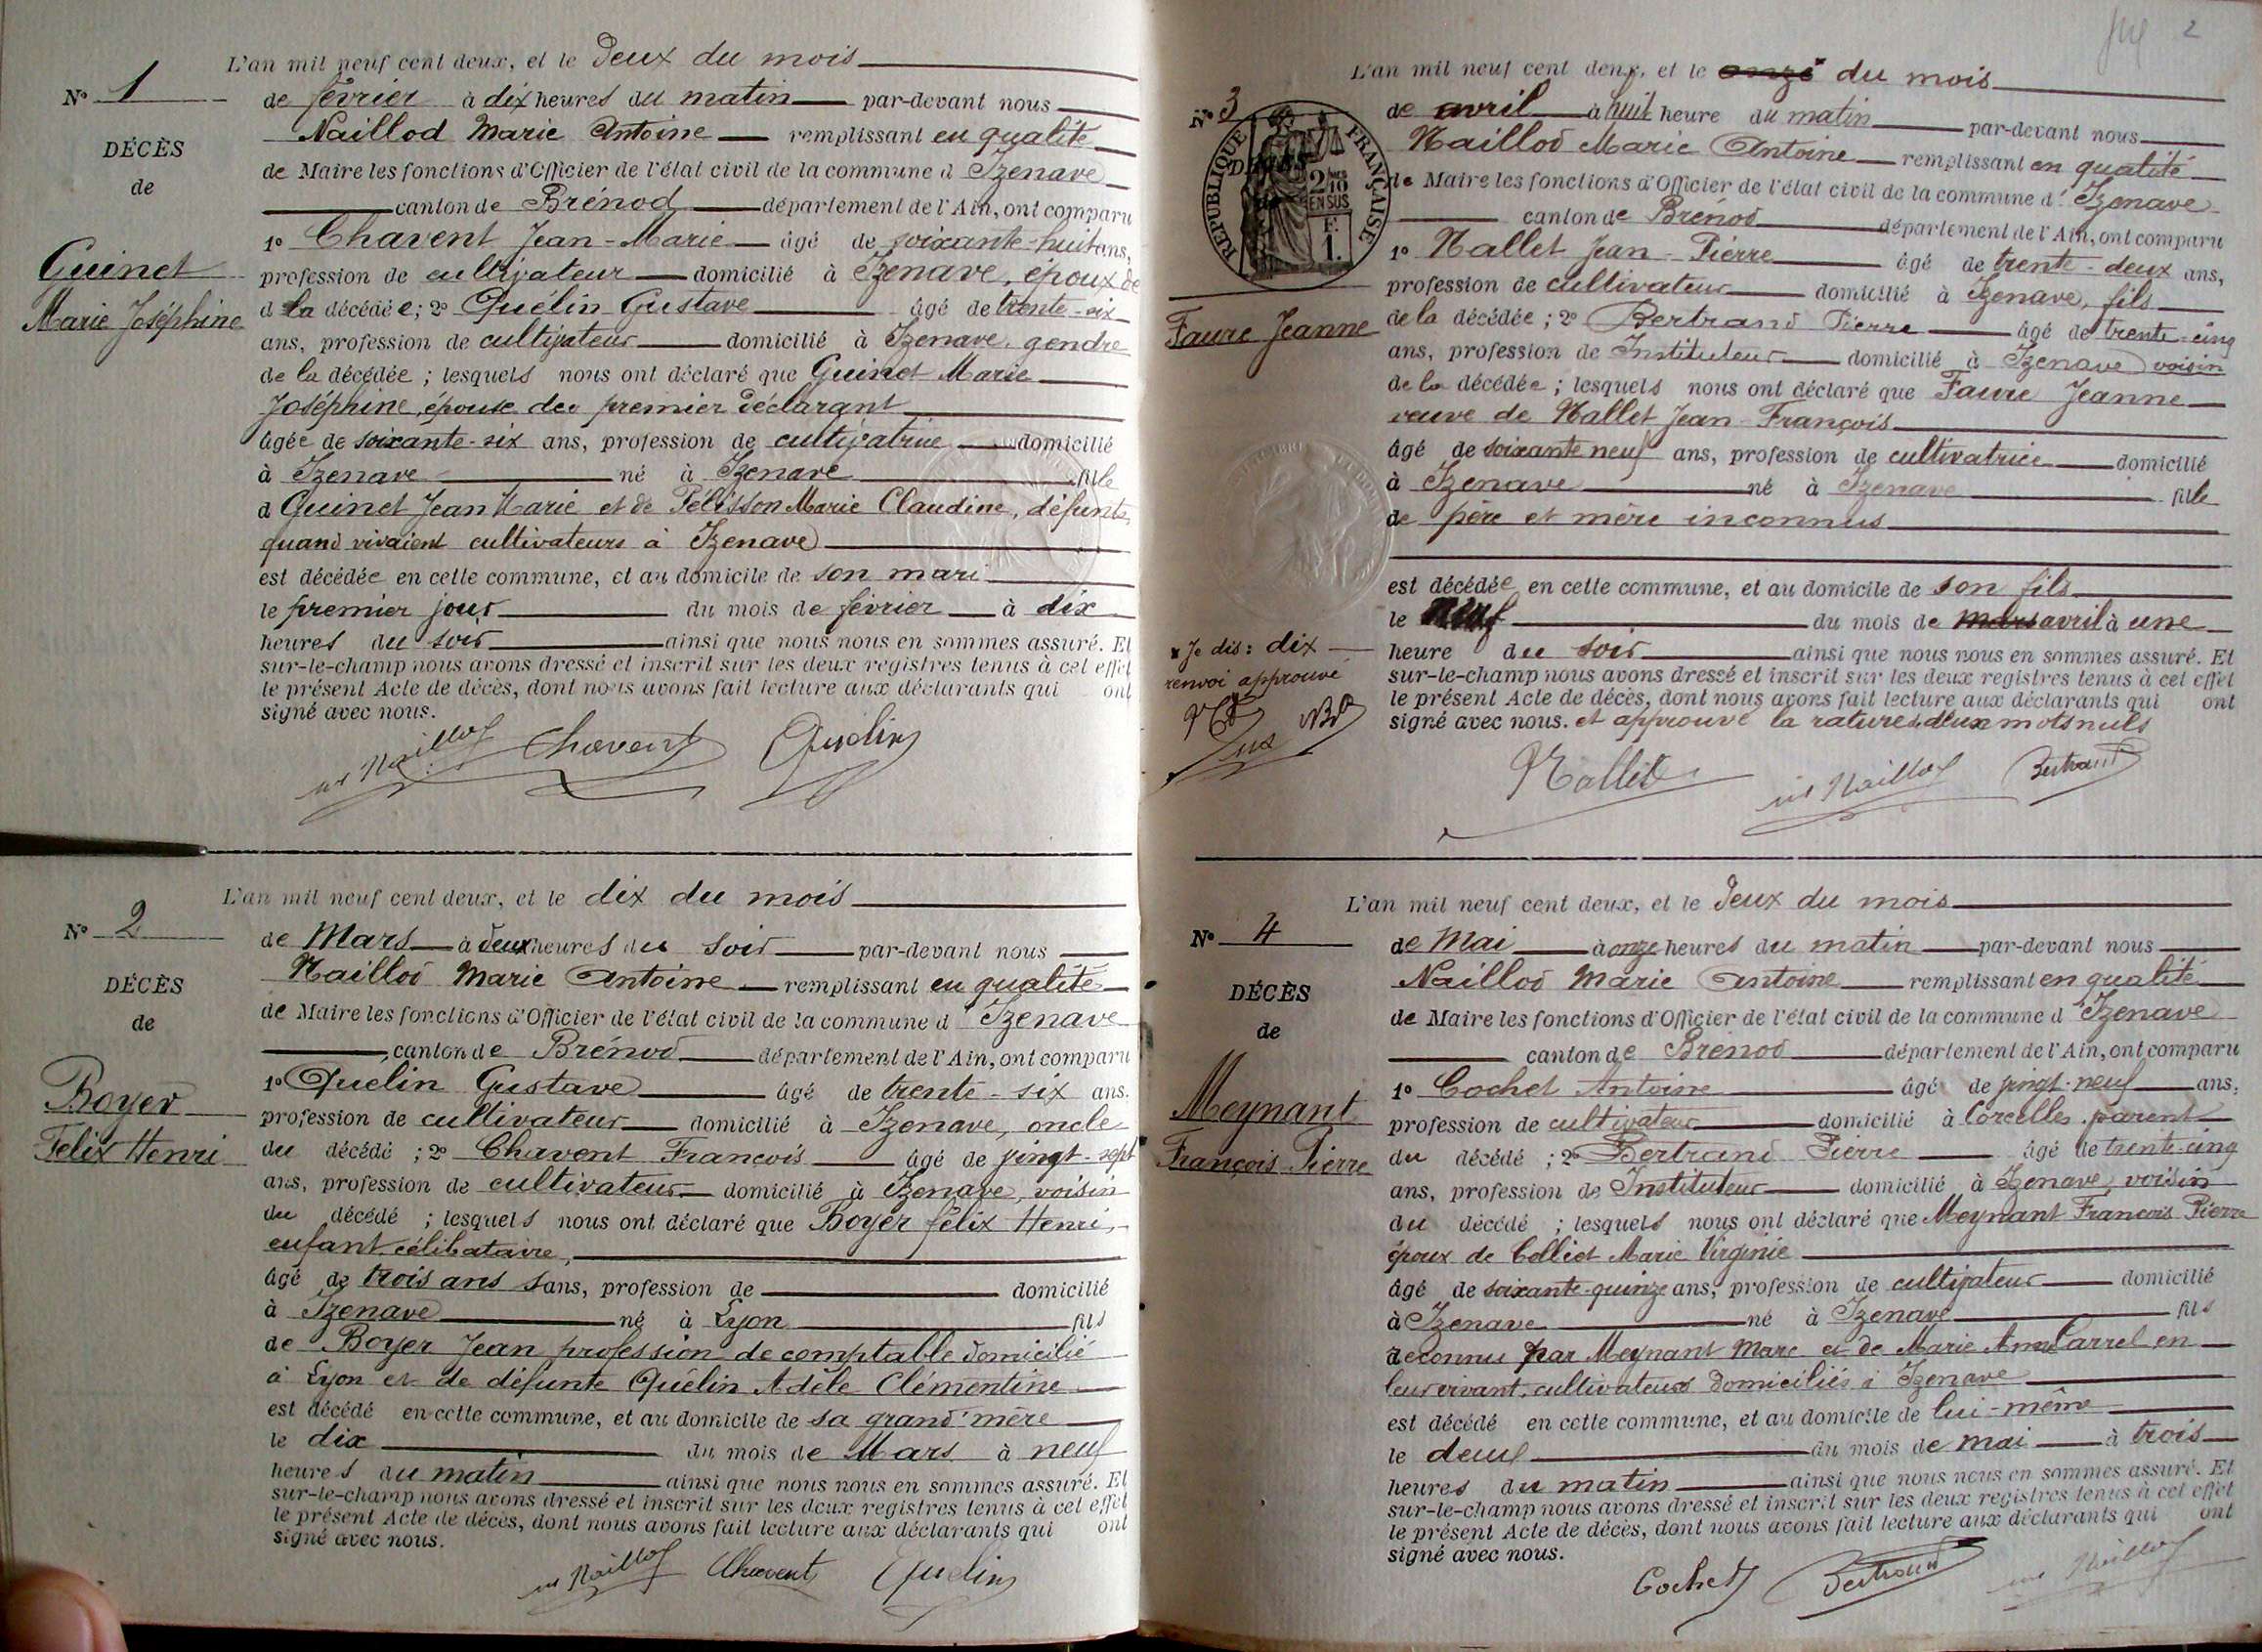 L'an mil neuf cent deux, et le deux du mois
N° 1
de février à dix heures du matin par-devant nous
Naillod Marie Antoine remplissant en qualité
DÉCÈS
de
de Maire les fonctions d'Officier de l'état civil de la commune d'Izenave
canton de Brénod département de l'Ain, ont comparu
1° Chavent Jean-Marie âgé de soixante-huit ans,
Guinet
Marie Joséphine
profession de cultivateur domicilié à Izenave, époux de
d la décédée; 2° Quélin Gustave âgé de trente-six
ans, profession de cultivateur domicilié à Izenave, gendre
de la décédée; lesquels nous ont déclaré que Guinet Marie
Joséphine, épouse du premier déclarant
âgée de soixante-six ans, profession de cultivatrice domicilié
à Izenave né à Izenave fille
d Guinet Jean Marie et de Pélisson Marie Claudine, défunts,
quand vivaient cultivateurs à Izenave
est décédée en cette commune, et au domicile de son mari
le premier jour du mois de février à dix
heures du soir ainsi que nous nous en sommes assuré. Et
sur-le-champ nous avons dressé et inscrit sur les deux registres tenus à cet effet
le présent Acte de décès, dont nous avons fait lecture aux déclarants qui ont
signé avec nous.
Naillod Chavent Quelin
L'an mil neuf cent deux, et le dix du mois
N° 2
de Mars à deux heures du soir par-devant nous
Naillod Marie Antoine remplissant en qualité
DÉCÈS
de
de Maire les fonctions d'Officier de l'état civil de la commune d'Izenave
canton de Brénod département de l'Ain, ont comparu
1° Quélin Gustave âgé de trente-six ans.
Boyer
Felix Henri
profession de cultivateur domicilié à Izenave, oncle
du décédé; 2° Chavent François âgé de vingt-sept
ans, profession de cultivateur domicilié à Izenave, voisin
du décédé; lesquels nous ont déclaré que Boyer félix Henri,
enfant célibataire,
âgé de trois ans sans, profession de domicilié
à Izenave né à Lyon fils
de Boyer Jean profession de comptable domicilié
à Lyon et de défunte Quélin Adèle Clémentine
est décédé en cette commune, et au domicile de sa grand'mère
le dix du mois de Mars à neuf
heures du matin ainsi que nous nous en sommes assuré. Et
sur-le-champ nous avons dressé et inscrit sur les deux registres tenus à cet effet
le présent Acte de décès, dont nous avons fait lecture aux déclarants qui ont
signé avec nous.
Naillod Chavent Quelin
2
L'an mil neuf cent deux, et le onze du mois
N° 3
de avril à huit heure du matin par-devant nous
Naillod Marie Antoine remplissant en qualité
DÉCÈS
RÉPUBLIQUE FRANÇAISE
2/10 EN SUS
F.
1.
de Maire les fonctions d'Officier de l'état civil de la commune d'Izenave
canton de Brénod département de l'Ain, ont comparu
1° Nallet Jean-Pierre âgé de trente-deux ans,
Faure Jeanne
profession de cultivateur domicilié à Izenave, fils
de la décédée; 2° Bertrand Pierre âgé de trente-cinq
ans, profession de Instituteur domicilié à Izenave voisin
de la décédée; lesquels nous ont déclaré que Faure Jeanne
veuve de Nallet Jean-François
âgé de soixante neuf ans, profession de cultivatrice domicilié
à Izenave né à Izenave fille
de père et mère inconnus
est décédée en cette commune, et au domicile de son fils
le neuf du mois de mars avril à une
heure du soir ainsi que nous nous en sommes assuré. Et
x Je dis: dix
renvoi approuvé
sur-le-champ nous avons dressé et inscrit sur les deux registres tenus à cet effet
le présent Acte de décès, dont nous avons fait lecture aux déclarants qui ont
signé avec nous. et approuvé la rature de deux mots nuls
Nallet Naillod Bertrand
L'an mil neuf cent deux, et le deux du mois
N° 4
de Mai à onze heures du matin par-devant nous
Naillod Marie Antoine remplissant en qualité
DÉCÈS
de
de Maire les fonctions d'Officier de l'état civil de la commune d'Izenave
canton de Brenod département de l'Ain, ont comparu
1° Cochet Antoine âgé de vingt-neuf ans,
Meynant
François Pierre
profession de cultivateur domicilié à Corcelles, parent
du décédé; 2° Bertrand Pierre âgé de trente-cinq
ans, profession de Instituteur domicilié à Izenave, voisin
du décédé; lesquels nous ont déclaré que Meynant François Pierre
époux de Colliet Marie Virginie
âgé de soixante-quinze ans, profession de cultivateur domicilié
à Izenave né à Izenave fils
reconnu par Meynant Marc et de Marie Anne Carrel en
leur vivant, cultivateurs domiciliés à Izenave
est décédé en cette commune, et au domicile de lui-même
le deux du mois de mai à trois
heures du matin ainsi que nous nous en sommes assuré. Et
sur-le-champ nous avons dressé et inscrit sur les deux registres tenus à cet effet
le présent Acte de décès, dont nous avons fait lecture aux déclarants qui ont
signé avec nous.
Cochet Bertrand Naillod